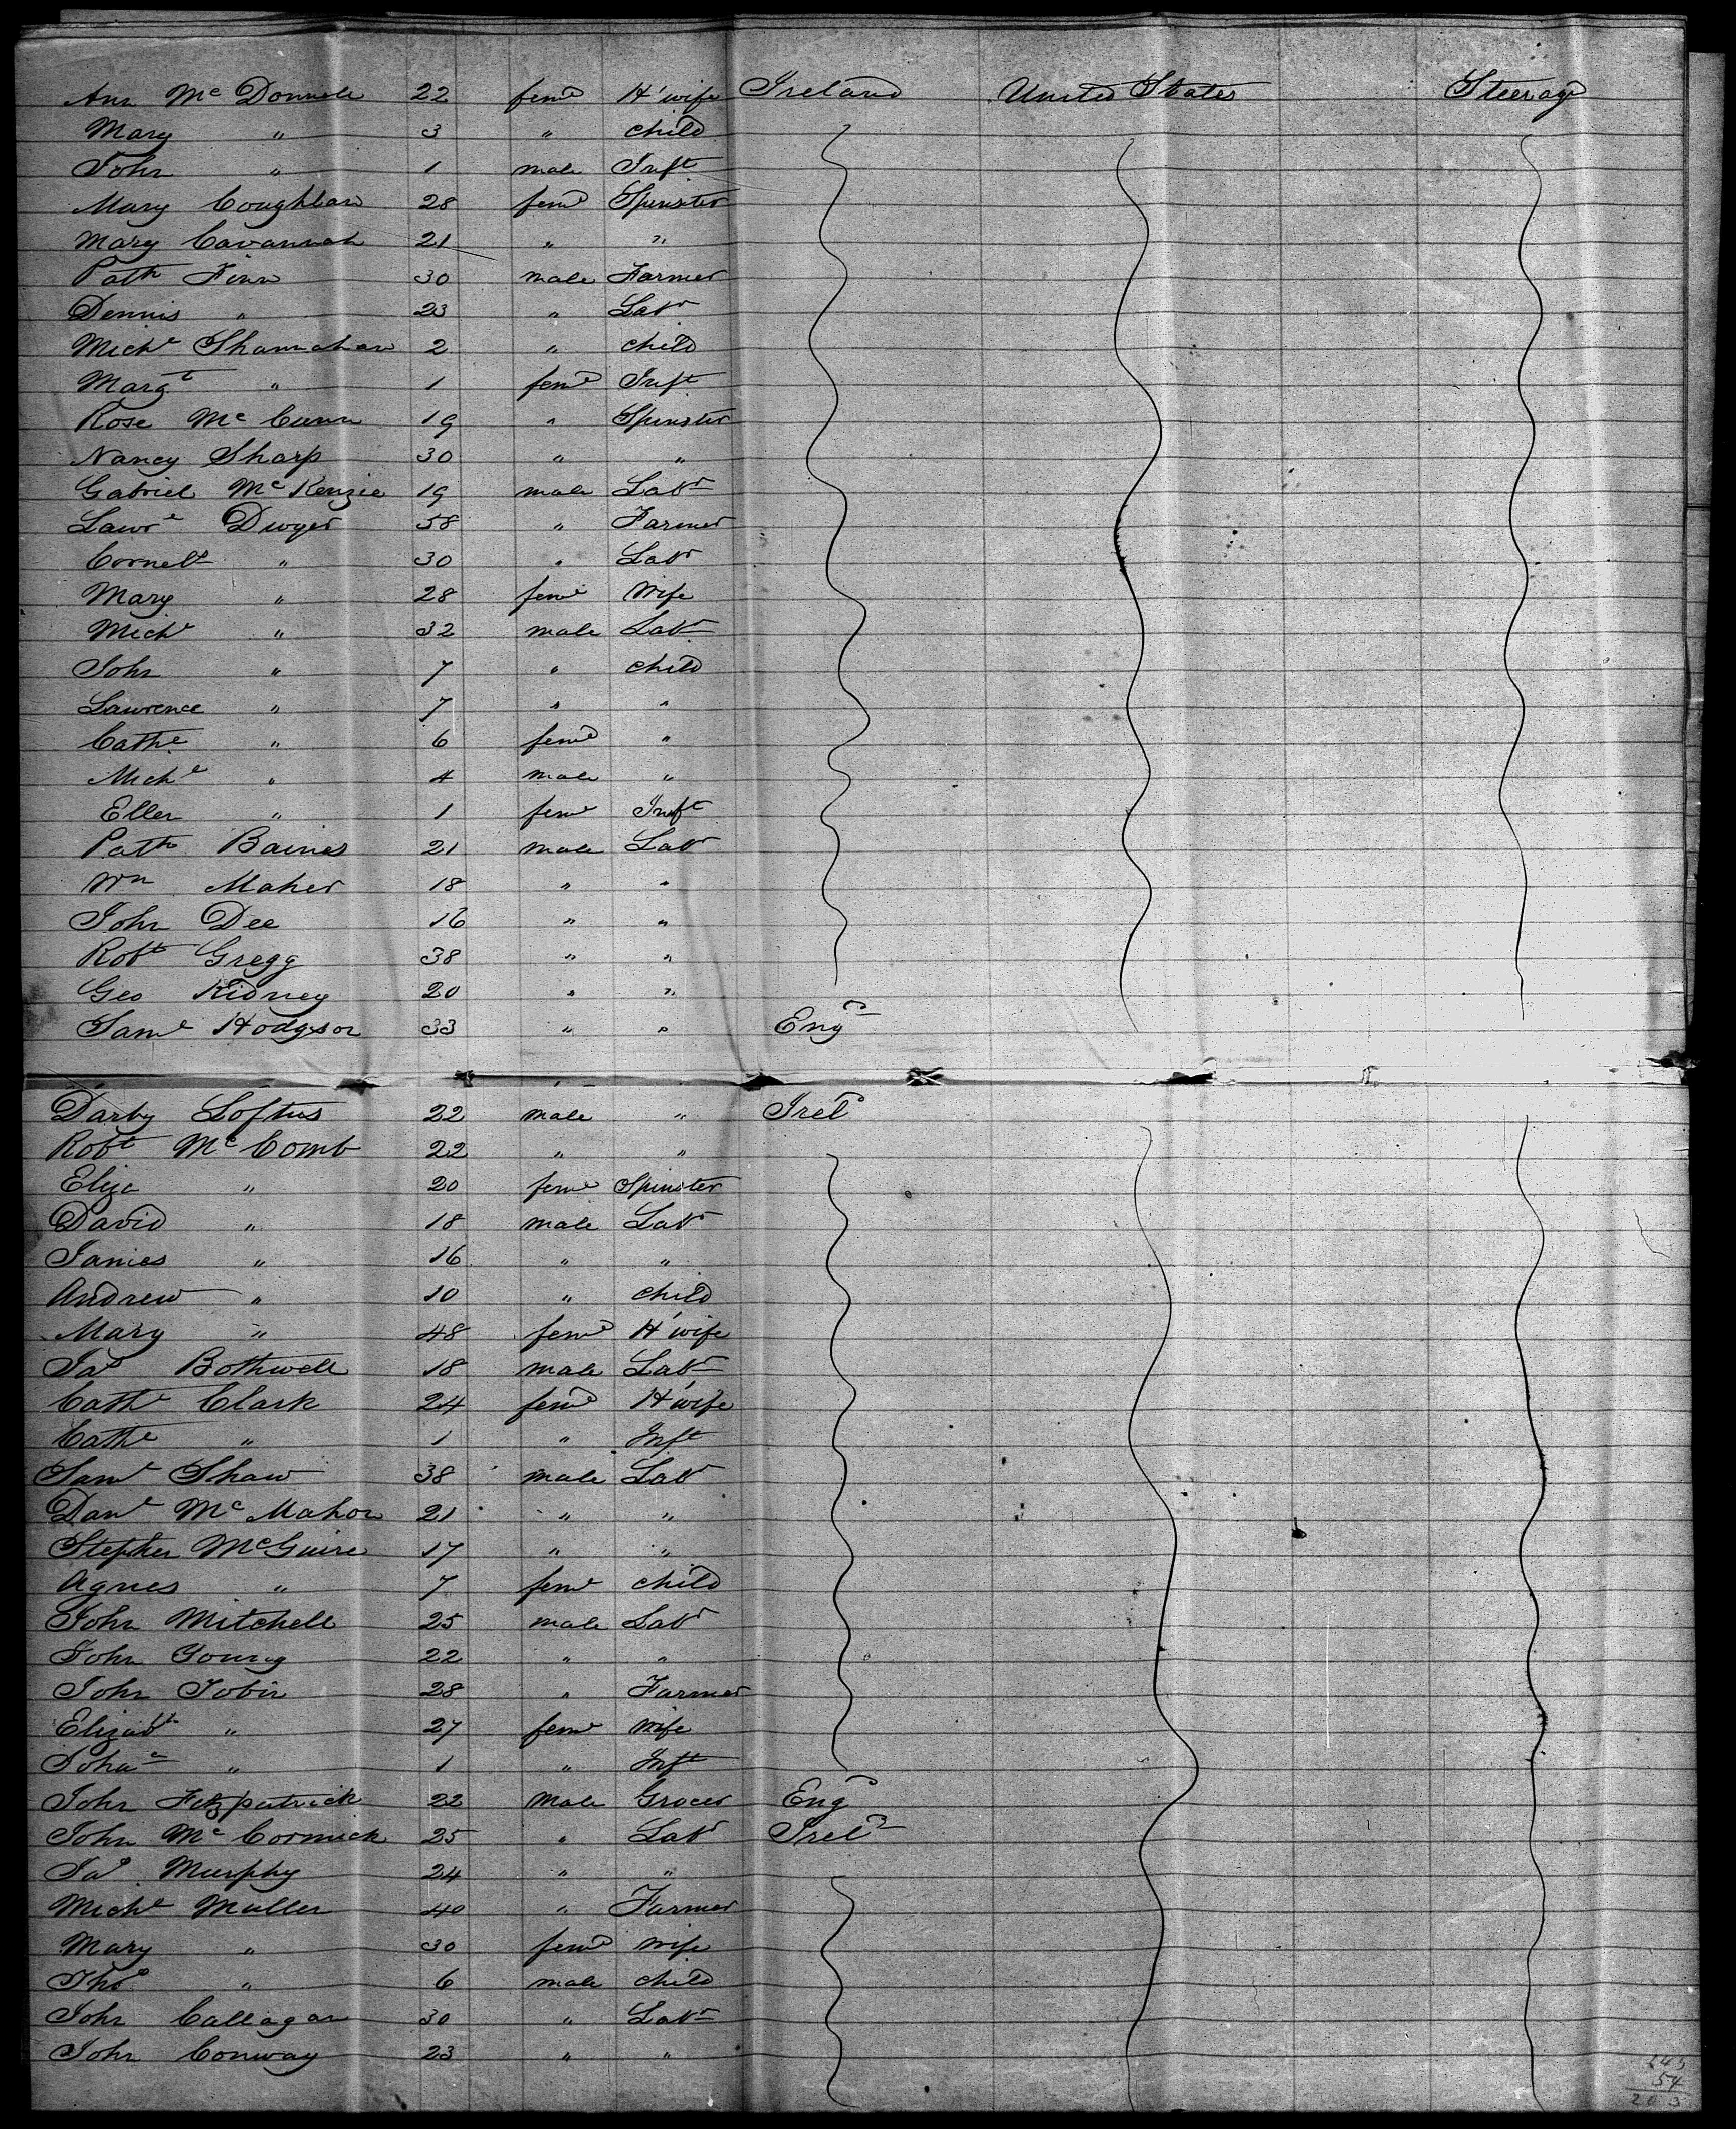 Ann McDonnell 22 feme H'wife Ireland United States Steerage
Mary " 3 " child
John " 1 male Inft
Mary Coughlan 28 feme Spinster
Mary Cavannah 21 " "
Patk Finn 30 male Farmer
Dennis " 23 " Labr
Michl Shannahan 2 " child
Margt " 1 feme Inft
Rose McCunn 19 " Spinster
Nancy Sharp 30 " "
Gabriel McKenzie 19 male Labr
Lawre Dwyer 58 " Farmer
Cornels " 30 " Labr
Mary " 28 feme Wife
Michl " 32 male Labr
John " 7 " child
Lawrence " 7 " "
Cathe " 6 feme "
Michl " 4 male "
Ellen " 1 feme Inft
Patk Baines 21 male Labr
Wm Maher 18 " "
John Dee 16 " "
Robt Gregg 38 " "
Geo Kidney 20 " "
Saml Hodgson 33 " " Engd
Darby Loftus 22 male " Ireld
Robt McComb 22 " "
Eliza " 20 feme Spinster
David " 18 male Labr
James " 16 " "
Andrew " 10 " child
Mary " 48 feme H'wife
Jas Bothwell 18 male Labr
Cathe Clark 24 feme H'wife
Cathe " 1 " Inft
Saml Shaw 38 male Labr
Danl McMahon 21 " "
Stephen McGuire 17 " "
Agnes " 7 feme child
John Mitchell 25 male Labr
John Young 22 " "
John Tobin 28 " Farmer
Elizabth " 27 feme wife
Joha " 1 " Inft
John Fitzpatrick 22 Male Grocer Engd
John McCormick 25 " Labr Ireld
Jas Murphy 24 " "
Michl Mullen 40 " Farmer
Mary " 30 feme wife
Thos " 6 male child
John Callagan 30 " Labr
John Conway 23 " "
54